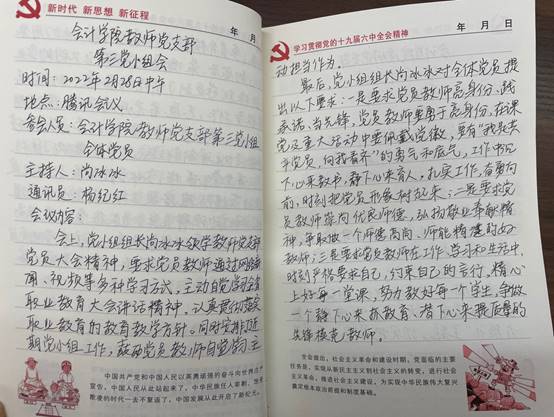 新时代 新思想 新征程
年 月
会计学院教师党支部
第三党小组会
时间：2022年2月28日中午
地点：腾讯会议
参会人员：会计学院教师党支部第三党小组
全体党员
主持人：尚冰冰
通讯员：杨纪红
会议内容：
会上，党小组组长尚冰冰领学教师党支部
党员大会精神，要求党员教师通过网络新
闻、视频等多种学习方式，主动自觉学习全国
职业教育大会讲话精神，认真贯彻落实
职业教育的教育教学方针。同时安排近
期党小组工作，鼓励党员教师自觉钧、主
中国共产党和中国人民以英勇顽强的奋斗向世界庄严
宣告，中国人民从此站起来了，中华民族任人宰割、饱受
欺凌的时代一去不复返了，中国发展从此开启了新纪元。
学习贯彻党的十九届六中全会精神
年 月 日
动担当作为。
最后，党小组组长尚冰冰对全体党员提
出以下要求：一是要求党员教师亮身份、践
承诺、当先锋，党员教师要勇于亮身份，在课
堂及重大活动中要佩戴党徽，要有“我是共
产党员，向我看齐”的勇气和底气，工作中沉
下心来教书，静下心来育人，扎实工作，奋勇向
前，时刻把党员形象树起来；二是要求党
员教师崇尚优良师德，弘扬敬业奉献精
神，争取做一个师德高尚、师能精湛的好
教师；三是要求党员教师在工作、学习和生活中，
时刻严格要求自己，约束自己的言行，精心
上好每一堂课，努力教好每一个学生，争做
一个静下心来抓教育、潜下心来
先锋模范教师。
会议提出，社会主义革命和建设时期，党面临的主要
任务是，实现从新民主主义到社会主义的转变，进行社会主
义革命，推进社会主义建设，为实现中华民族伟大复兴
奠定根本政治前提和制度基础。